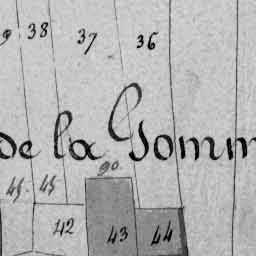 9 38 37 36
de la Gomm
90
45 45
42 43 44